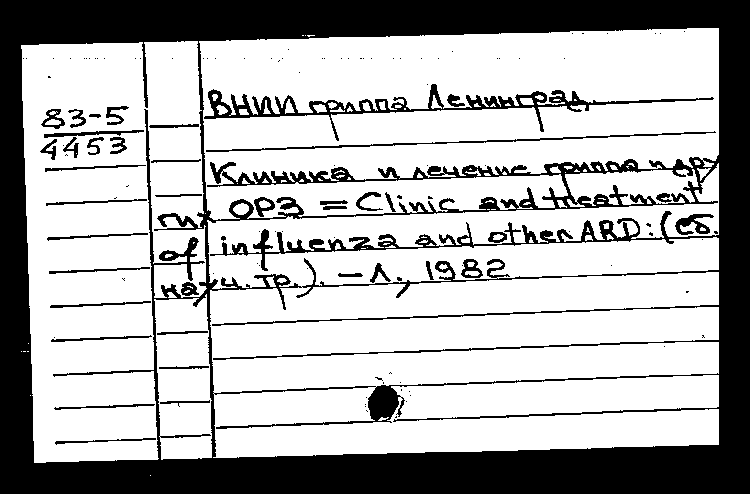 ВНИИ гриппа Ленинград.
83-5
4453
Клиника и лечение гриппа и дру
гих ОРЗ = Clinic and treatment
of influenza and other ARD: (сб.
науч. тр.). – Л., 1982